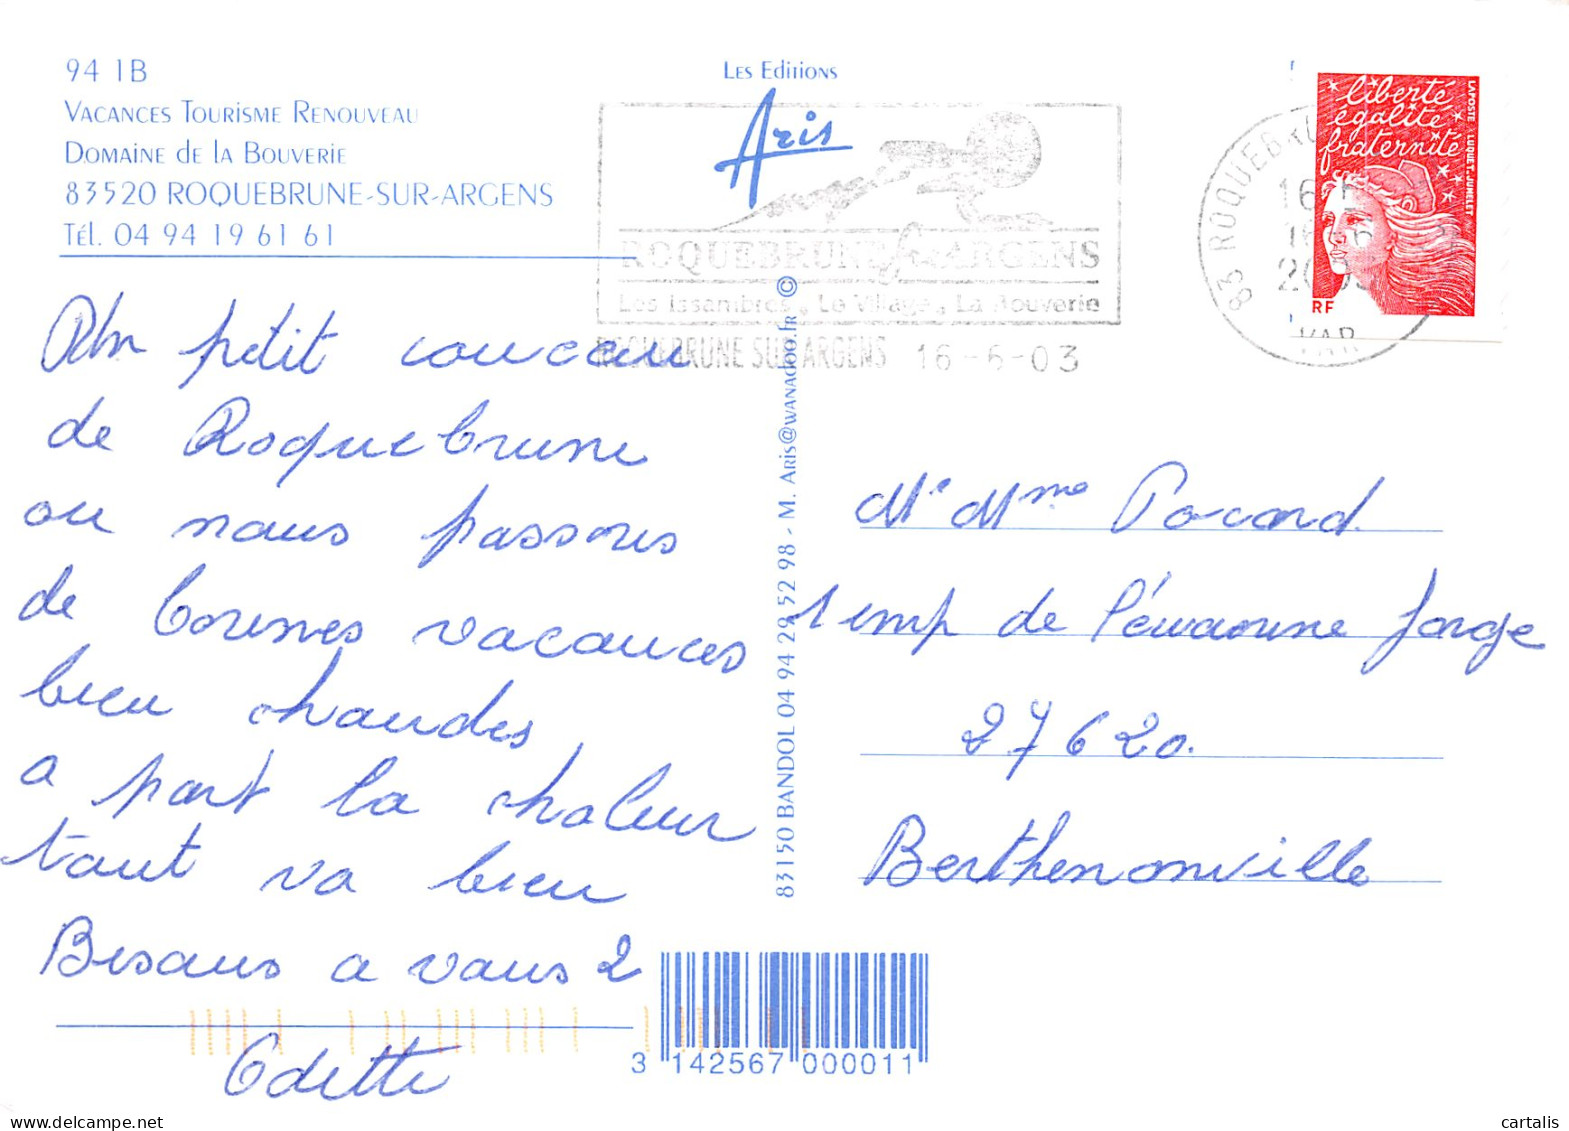 94 IB
Vacances Tourisme Renouveau
Domaine de la Bouverie
83520 ROQUEBRUNE-SUR-ARGENS
Tél. 04 94 19 61 61
Les Editions
Aris
ROQUEBRUNE S/ ARGENS
Les Issambres, Le Village, La Bouverie
ROQUEBRUNE SUR ARGENS 16-6-03
83 ROQUEBRU
16 H
2003
VAR
liberté
égalité
fraternité
LA POSTE LUQUET-JUMELET
RF
Un petit coucou
de Roquebrune
ou nous passons
de bonnes vacances
bien chaudes
a part la chaleur
tout va bien
Bisous a vous 2
Odette
83150 BANDOL 04 94 29 52 98 - M. Aris@wanadoo.fr ©
Mr Mme Pocard
1 imp de
27620.
Berthenonville
3 142567 000011
cartalis